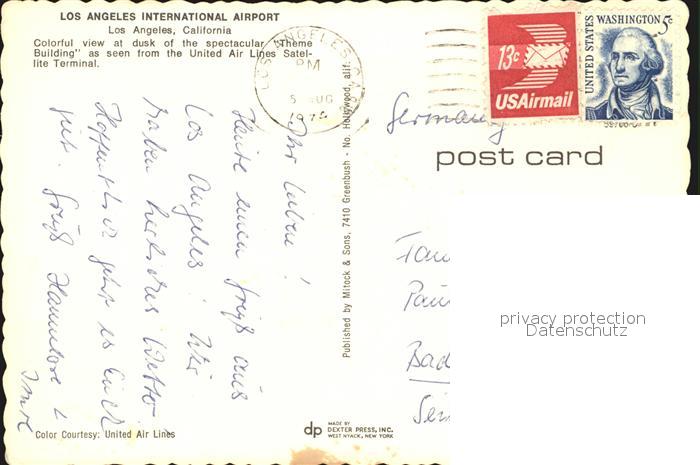 LOS ANGELES INTERNATIONAL AIRPORT
Los Angeles, California
Colorful view at dusk of the spectacular "Theme
Building" as seen from the United Air Lines Satel-
lite Terminal.
LOS ANGELES, CA
PM
5 AUG
13c
USAirmail
UNITED STATES
WASHINGTON 5c
Germany
post card
Ihr Lieben!
Heute einen Gruß aus
Los Angeles! Wir
haben herrliches Wetter
Hoffentlich geht es Euch
gut. Gruß Hannelore &
Published by Mitock & Sons, 7410 Greenbush - No. Hollywood, alif.
Bad
privacy protection
Datenschutz
Color Courtesy: United Air Lines
dp MADE BY
DEXTER PRESS, INC.
WEST NYACK, NEW YORK